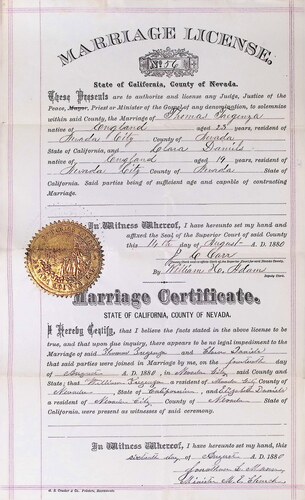 MARRIAGE LICENSE.
No 56
State of California, County of Nevada.
These Presents are to authorize and license any Judge, Justice of the
Peace, Mayor, Priest or Minister of the Gospel of any denomination, to solemnize
within said County, the Marriage of Thomas Tregenza
native of England aged 23 years, resident of
Nevada City County of Nevada
State of California, and Clara Daniels
native of England aged 19 years, resident of
Nevada City County of Nevada State of
California. Said parties being of sufficient age and capable of contracting
Marriage.
In Witness Whereof, I have hereunto set my hand and
affixed the Seal of the Superior Court of said County
this 14th day of August A. D. 1880
Carr
By William H. Adams
Deputy Clerk.
Marriage Certificate.
STATE OF CALIFORNIA, COUNTY OF NEVADA.
I Hereby Certify, that I believe the facts stated in the above license to be
true, and that upon due inquiry, there appears to be no legal impediment to the
Marriage of said Thomas Tregenza and Clara Daniels
that said parties were joined in Marriage by me, on the
day of August A. D. 1880, in Nevada City said County and
State; that William Tregenza a resident of Nevada City County of
Nevada, State of California, and Elizabeth Daniels
a resident of Nevada City County of Nevada State of
California, were present as witnesses of said ceremony.
In Witness Whereof, I have hereunto set my hand, this
day of August A. D. 1880
Minister M. E. Church